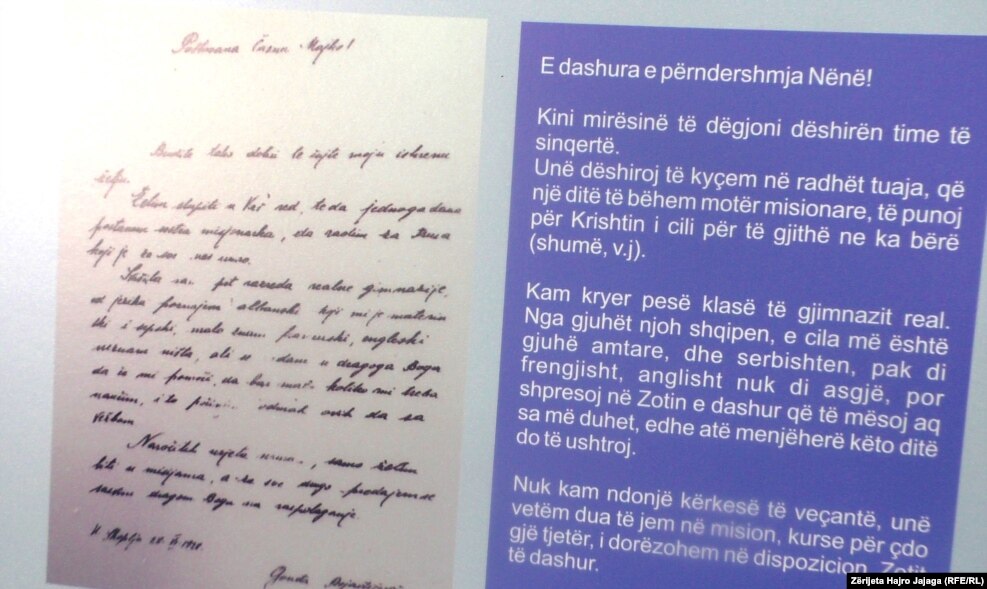 Poštovana Časna Majko!
Budite tako dobri te čujte moju iskrenu
želju.
Želim stupiti u Vaš red, te da jednoga dana
postanem sestra misjonarka, i da radim za
koji je za sve nas umro.
pet razreda realne gimnazije,
od jezika poznajem albanski koji mi je materin
ski i srpski, malo znam francuski, engleski
neznam ništa, ali se nadam u dragoga Boga
da će mi pomoći, da koliko mi treba
naučim, i to odmah ovih da sa
vežbam
Naročitih uvjeta nemam, samo želim
biti u misijama, a za sve drugo predajem se
sasdim dragom Bogu na raspolaganje.
U Skoplju 28. VI 1928.
Gonđa
E dashura e përndershmja Nënë!
Kini mirësinë të dëgjoni dëshirën time të
sinqertë.
Unë dëshiroj të kyçem në radhët tuaja, që
një ditë të bëhem motër misionare, të punoj
për Krishtin i cili për të gjithë ne ka bërë
(shumë, v.j).
Kam kryer pesë klasë të gjimnazit real.
Nga gjuhët njoh shqipen, e cila më është
gjuhë amtare, dhe serbishten, pak di
frengjisht, anglisht nuk di asgjë, por
shpresoj në Zotin e dashur që të mësoj aq
sa më duhet, edhe atë menjëherë këto ditë
do të ushtroj.
Nuk kam ndonjë kërkesë të veçantë, unë
vetëm dua të jem në mision, kurse për çdo
gjë tjetër, i dorëzohem në dispozicion Zotit
të dashur.
Zërijeta Hajro Jajaga (RFE/RL)